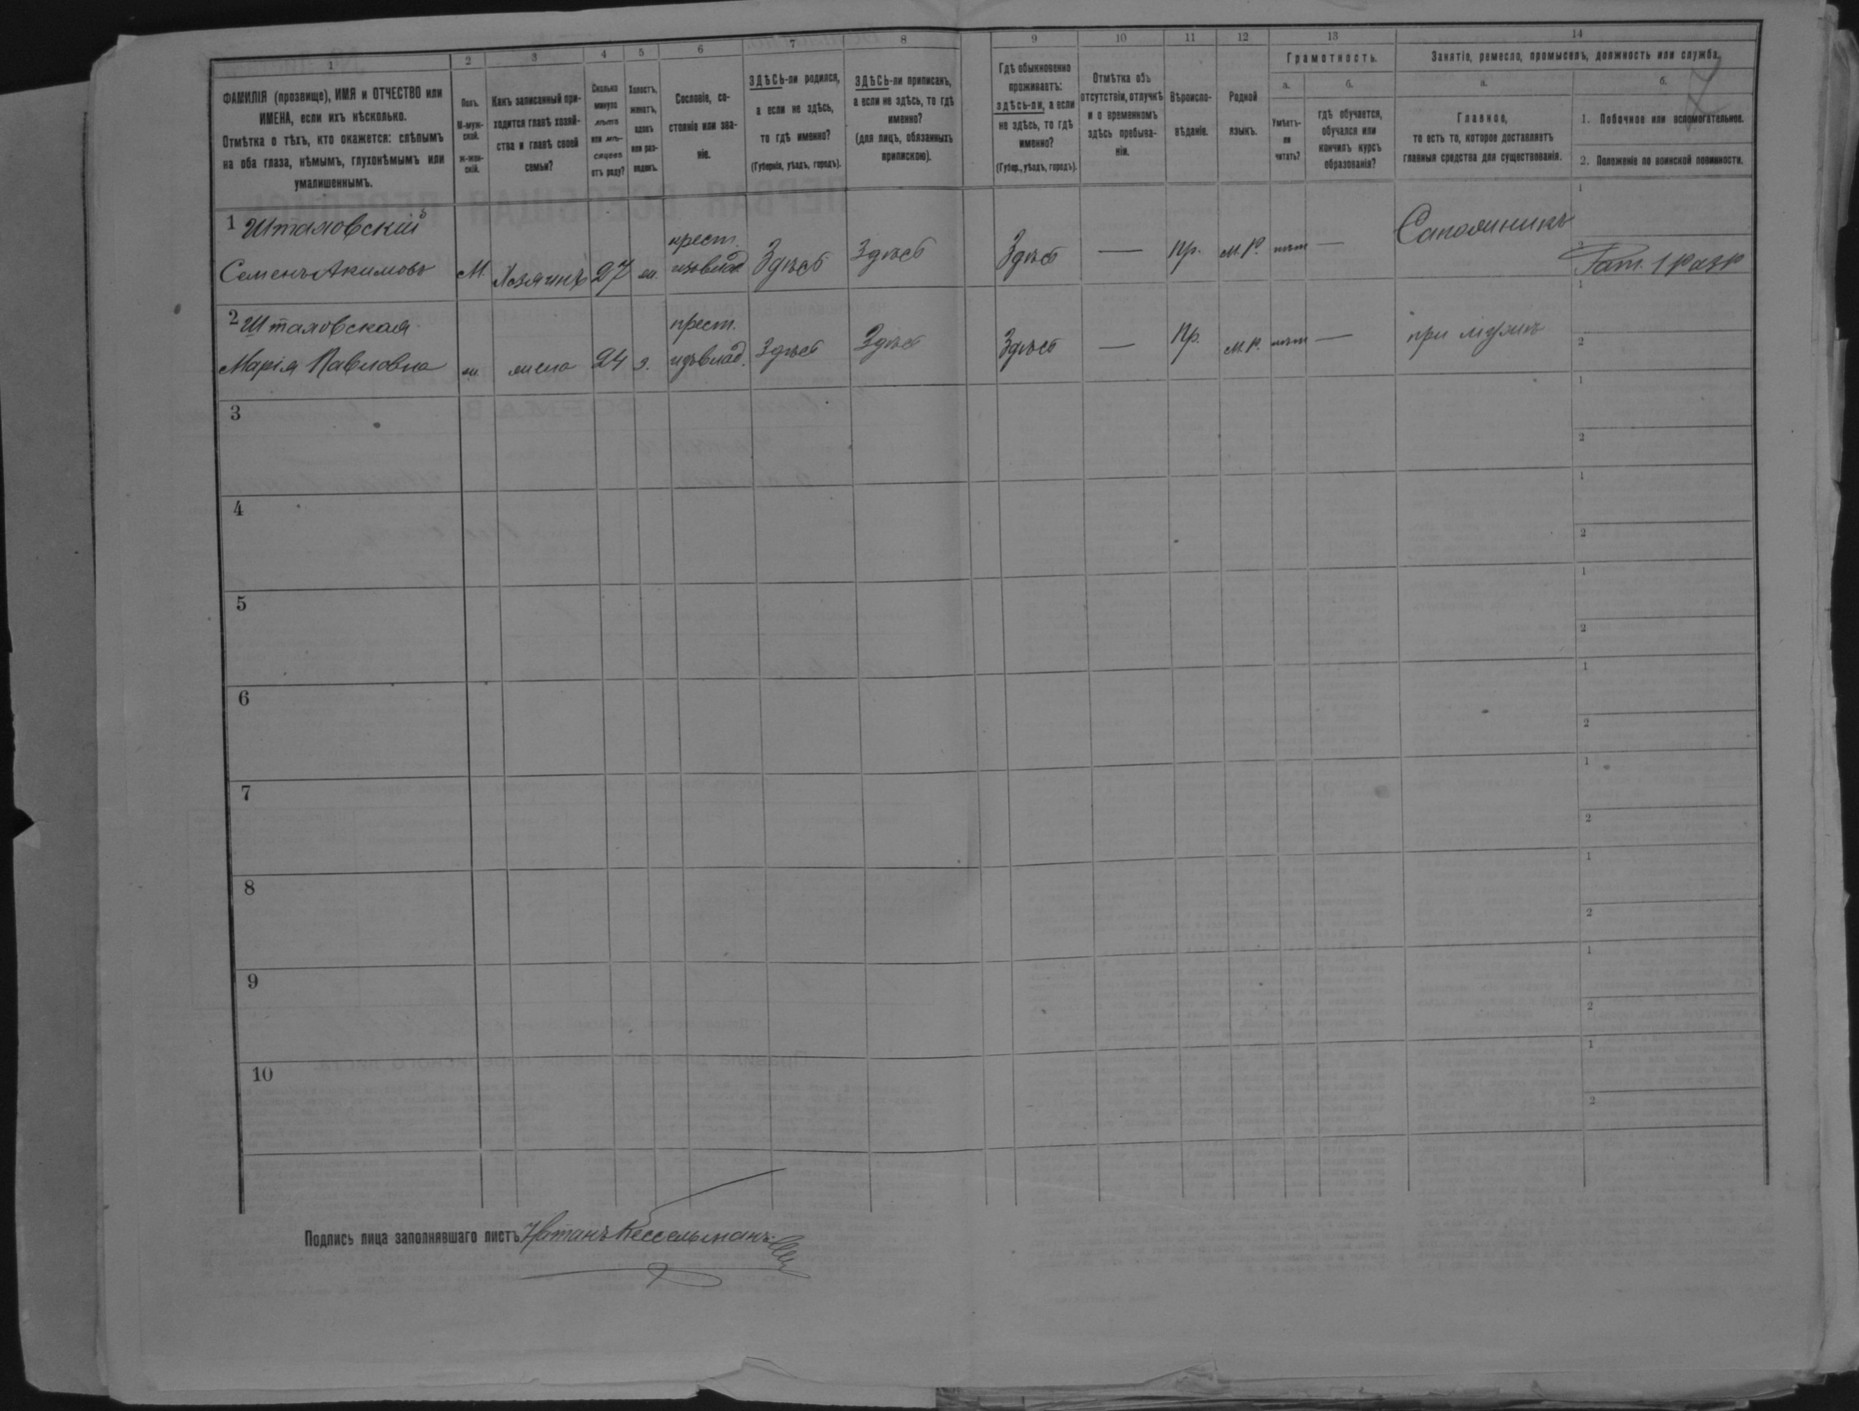 1 2 3 4 5 6 7 8 9 10 11 12 13 14
ФАМИЛІЯ (прозвище), ИМЯ и ОТЧЕСТВО или
ИМЕНА, если ихъ нѣсколько.
Отмѣтка о тѣхъ, кто окажется: слѣпымъ
на оба глаза, нѣмымъ, глухонѣмымъ или
умалишеннымъ.
Полъ.
М-муж-
ской.
Ж-жен-
скій.
Какъ записанный при-
ходится главѣ хозяй-
ства и главѣ своей
семьи?
Сколько
минуло
лѣтъ
или мѣ-
сяцевъ
отъ роду?
Холостъ,
женатъ,
вдовъ
или раз-
веденъ.
Сословіе, со-
стояніе или зва-
ніе.
ЗДѢСЬ-ли родился,
а если не здѣсь,
то гдѣ именно?
(Губернія, уѣздъ, городъ).
ЗДѢСЬ-ли приписанъ,
а если не здѣсь, то гдѣ
именно?
(для лицъ, обязанныхъ
припискою).
Гдѣ обыкновенно
проживаетъ:
здѣсь-ли, а если
не здѣсь, то гдѣ
именно?
(Губер., уѣздъ, городъ).
Отмѣтка объ
отсутствіи, отлучкѣ
и о временномъ
здѣсь пребыва-
ніи.
Вѣроиспо-
вѣданіе.
Родной
языкъ.
Грамотность.
а.
Умѣетъ-
ли
читать?
б.
гдѣ обучается,
обучался или
кончилъ курсъ
образованія?
Занятіе, ремесло, промыселъ, должность или служба.
а.
Главное,
то есть то, которое доставляетъ
главныя средства для существованія.
б.
1. Побочное или вспомогательное.
2. Положеніе по воинской повинности.
1 Штаховскій
Семенъ Акимовъ М Хозяинъ 27 ж. крест. изъ влад. Здѣсь Здѣсь Здѣсь — Пр. М.Р. нѣтъ — Сапожникъ
1
2 Рат. 1 разр
2 Штаховская
Марія Павловна ж жена 24 з. крест. изъ влад. Здѣсь Здѣсь Здѣсь — Пр. М.Р. нѣтъ — при мужѣ
1
2
3
1
2
4
1
2
5
1
2
6
1
2
7
1
2
8
1
2
9
1
2
10
1
2
Подпись лица заполнявшаго листъ Нотанъ Кессельманъ